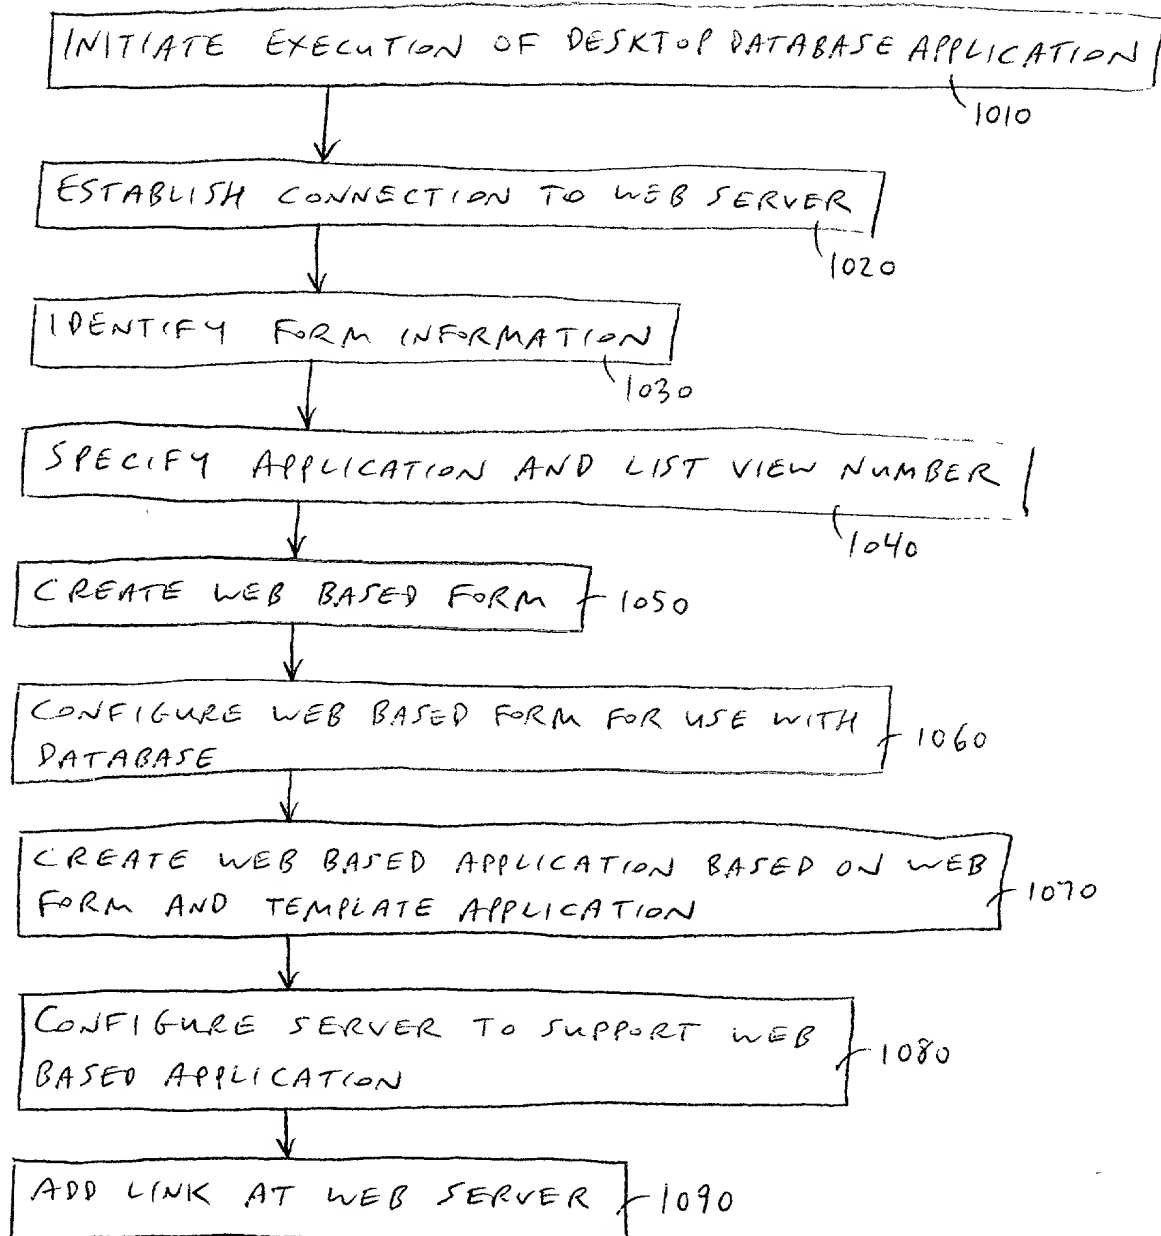 INITIATE EXECUTION OF DESKTOP DATABASE APPLICATION
1010
ESTABLISH CONNECTION TO WEB SERVER
1020
IDENTIFY FORM INFORMATION
1030
SPECIFY APPLICATION AND LIST VIEW NUMBER
1040
CREATE WEB BASED FORM
1050
CONFIGURE WEB BASED FORM FOR USE WITH
DATABASE
1060
CREATE WEB BASED APPLICATION BASED ON WEB
FORM AND TEMPLATE APPLICATION
1070
CONFIGURE SERVER TO SUPPORT WEB
BASED APPLICATION
1080
ADD LINK AT WEB SERVER
1090